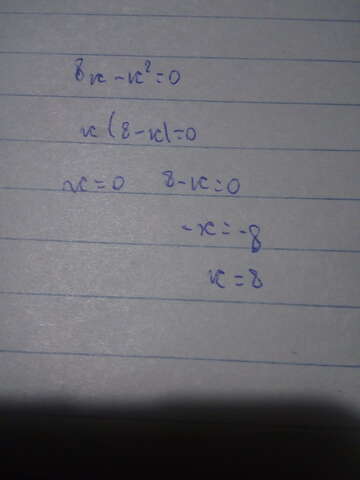 8x-x²=0
x(8-x)=0
x=0 8-x=0
-x=-8
x=8